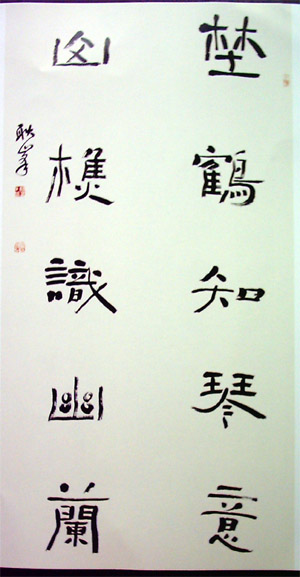 埜鶴知琴意
樵識幽蘭
耿峯